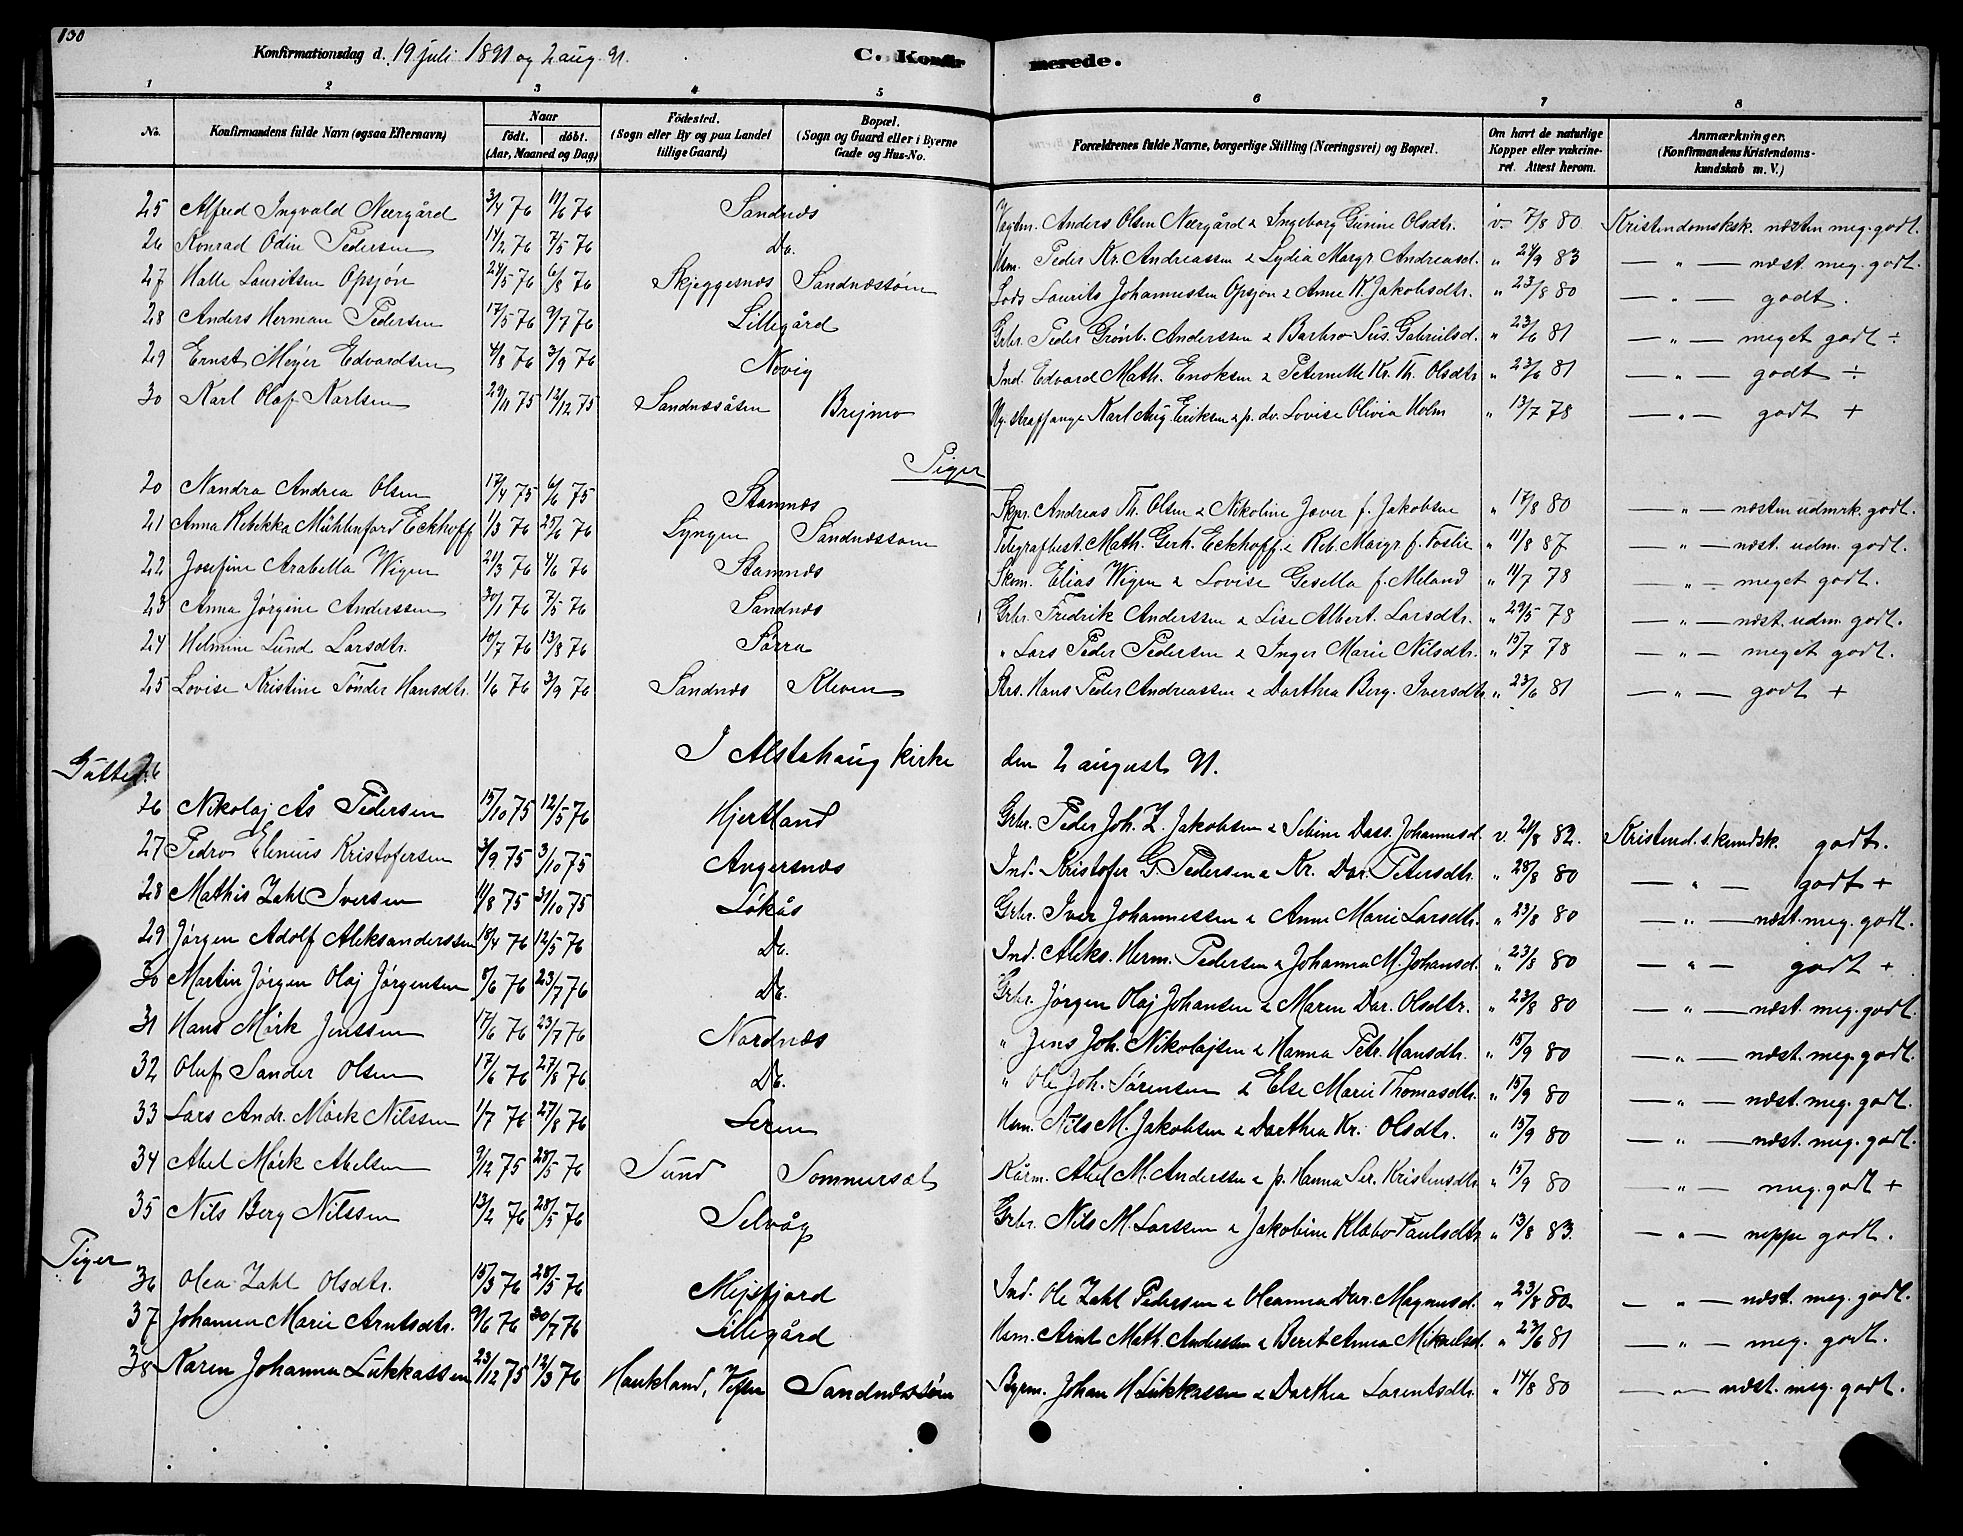 130
Konfirmationsdag d. 19 juli 1891 og 2 aug. 91. C. Konfirmerede.
1 2 3 4 5 6 7 8
No. Konfirmandens fulde Navn (ogsaa Efternavn) Naar födt. döbt. (Aar, Maaned og Dag) Födested. (Sogn eller By og paa Landet tillige Gaard) Bopæl. (Sogn og Gaard eller i Byerne Gade og Hus-No. Forældrenes fulde Navne, borgerlige Stilling (Næringsvei) og Bopæl. Om havt de naturlige Kopper eller vakcineret. Attest herom. Anmærkninger. (Konfirmandens Kristendomskundskab m. V.)
25 Alfred Ingvald Neergård 3/4 76 11/6 76 Sandnæs Anders Olsen Neergård & Ingeborg Gurine Olsdtr. v. 7/8 80 Kristendomsksk. næsten meg. godt.
26 Konrad Odin Pedersen 14/2 76 7/5 76 Do. Hsm. Peder Kr. Andreassen & Lydia Margr. Andreasd. " 24/9 83 — " — næst. meg. godt.
27 Halle Lauritsen Opsjøn 24/5 76 6/8 76 Skjeggesnæs Sandnæssøen Lods Laurits Johannessen Opsjøn & Anne K. Jakobsdtr. " 23/8 80 — " — godt.
28 Anders Herman Pedersen 17/5 76 9/7 76 Lillegård Grbr. Peder Grønb. Anderssen & Barbro Sus. Gabrielsd. " 23/6 81 — " — meget godt ÷
29 Ernst Meyer Edvardsen 4/8 76 3/9 76 Novig Ind. Edvard Math. Enoksen & Peternelle Kr. Th. Olsdtr " 23/6 81 — " — godt ÷
30 Karl Olaf Karlsen 29/11 75 12/12 75 Sandnæsåsen Brejmo straffange Karl Aug. Eriksen & p. dv. Lovise Olivia Holm " 13/7 78 — " — godt +
Piger
20 Nandra Andrea Olsen 17/4 75 6/6 75 Stamnæs Skpr. Andreas Th. Olsen & Nikoline Jæver f. Jakobsen " 17/8 80 — " — næsten udmrk. godt.
21 Anna Rebekka Mühlenford Eckhoff 1/3 76 25/6 76 Lyngen Sandnæssøen Telegrafbest. Math. Gerh. Eckhoff & Reb. Margr. f. Foslie " 11/8 87 — " — næst. udm. godt.
22 Josefine Arabella Wigen 21/3 76 4/6 76 Stamnæs Skom. Elias Wigen & Lovise Gesella f. Meland " 11/7 78 — " — meget godt.
23 Anna Jørgine Anderssen 30/1 76 7/5 76 Sandnæs Grbr. Fredrik Anderssen & Lise Albert. Larsdtr. " 29/5 78 — " — næst. udm. godt.
24 Helmine Lund Larsdtr. 10/7 76 13/8 76 Sørra " Lars Peder Pedersen & Inger Marie Nilsdtr. " 15/7 78 — " — meget godt.
25 Lovise Kristine Tønder Hansdtr. 1/6 76 3/9 76 Sandnæs Kleven Strs. Hans Peder Andreassen & Darthea Berg. Iversdtr " 23/6 81 — " — godt +
I Alstahaug kirke den 2 august 91.
Gutter.
26 Nikolaj Ås Pedersen 15/10 75 12/5 76 Hjertland Grbr. Peder Joh. Z. Jakobsen & Seline Dass. Johannesd. v. 21/8 82. Kristend.s.kundsk. godt.
27 Pedro Elenius Kristofersen 3/9 75 3/10 75 Angersnæs Ind. Kristofer G. Pedersen & Kr. Dar. Petersdtr. " 28/8 80 — " — godt +
28 Mathis Zahl Iversen 11/8 75 31/10 75 Løkås Grbr. Iver Johannessen & Anne Marie Larsdtr. " 23/8 80 — " — næst. meg. godt.
29 Jørgen Adolf Aleksanderssen 18/4 76 12/5 76 Do. Ind. Aleks. Herm. Pedersen & Johanna M. Johansd. " 23/8 80 — " — godt +
30 Martin Jørgen Olaj Jørgensen 5/6 76 23/7 76 Do. Grbr. Jørgen Olaj Johansen & Maren Dar. Olsdtr. " 23/8 80 — " — næst. meg. godt.
31 Hans Mørk Jenssen 17/6 76 23/7 76 Nordnæs " Jens Joh. Nikolajsen & Hanna Petr. Hansdtr. " 15/9 80 — " — næst. meg. godt.
32 Oluf Sander Olsen 17/6 76 27/8 76 Do. " Ole Joh. Sørensen & Else Marie Thomasdtr. " 15/9 80 — " — næst. meg. godt.
33 Lars Andr. Mørk Nilssen 1/7 76 27/8 76 Leren Hsm. Nils M. Jakobsen & Darthea Kr. Olsdtr. " 15/9 80 — " — næst. meg. godt.
34 Abel Mørk Abelsen 9/12 75 28/5 76 Sund Sommersæt Kårm. Abel M. Anderssen & p. Hanna Ser. Kristensdtr " 15/9 80 — " — meg. godt +
35 Nils Berg Nilssen 13/2 76 28/5 76 Selvåg Grbr. Nils M. Larssen & Jakobine Klæbo Paulsdtr " 13/8 83. — " — neppe godt.
Piger
36 Olea Zahl Olsdtr. 15/3 76 28/5 76 Mejsfjord Ind. Ole Zahl Pedersen & Oleanna Dar. Magnusd. " 23/8 80 — " — næst. meg. godt.
37 Johanna Marie Arntsdtr. 9/6 76 30/7 76 Lillegård Hsm. Arnt Math. Anderssen & Berit Anna Mikaelsd. " 23/6 81 — " — meg. godt.
38 Karen Johanna Lukkassen 23/12 75 12/3 76 Haukland, Vefsen Sandnæssøen Byrm. Johan H. Lukkassen & Darthea Lorentsdtr. " 14/8 80 — " — næst. meg. godt.